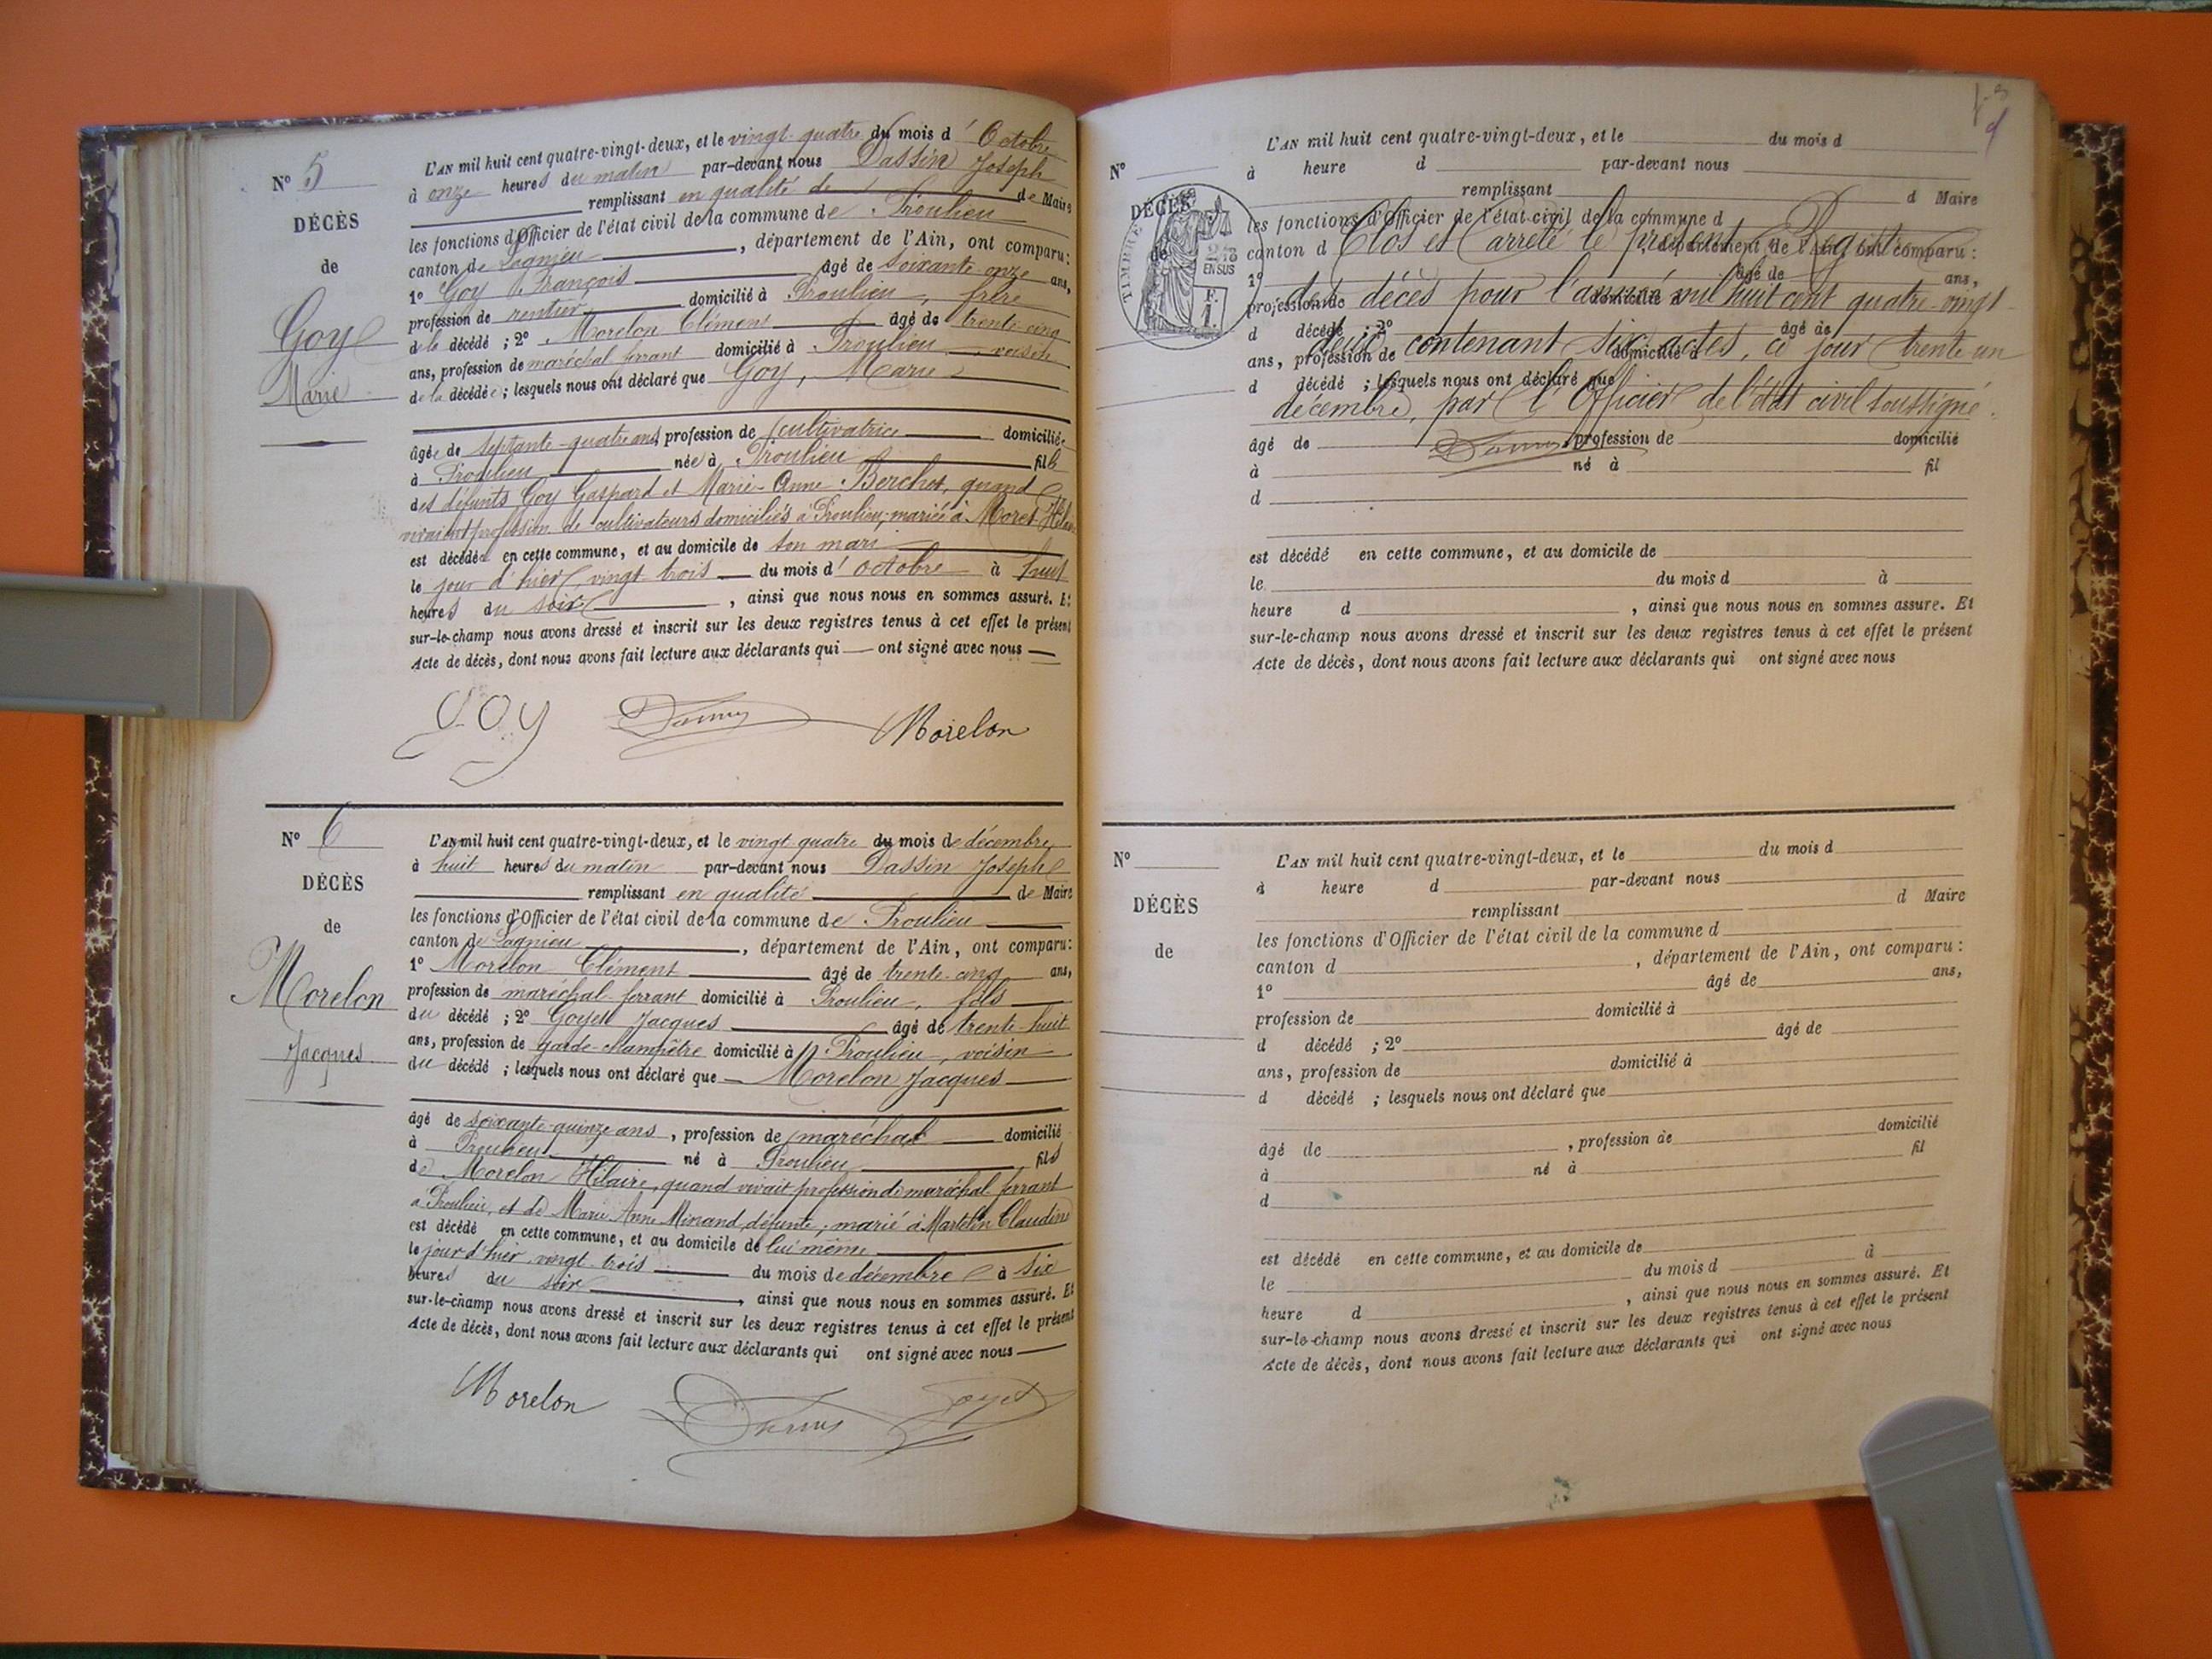 N° 5
DÉCÈS
de
Goy
Marie
L'AN mil huit cent quatre-vingt-deux, et le vingt-quatre du mois d'Octobre
à onze heures du matin par-devant nous Dassin Joseph
remplissant en qualité de de Maire
les fonctions d'Officier de l'état civil de la commune de Proulieu
canton de Lagnieu, département de l'Ain, ont comparu:
1° Goy François âgé de soixante onze ans,
profession de rentier domicilié à Proulieu, frère
de la décédé ; 2° Morelon Clément âgé de trente-cinq
ans, profession de maréchal ferrant domicilié à Proulieu, voisin
de la décédée ; lesquels nous ont déclaré que Goy, Marie
âgée de septante-quatre ans, profession de cultivatrice domiciliée
à Proulieu née à Proulieu fille
des défunts Goy Gaspard et Marie-Anne Berchet, quand
vivaient profession de cultivateurs domiciliés à Proulieu, mariée à Moret
est décédée en cette commune, et au domicile de son mari
le jour d'hier, vingt trois du mois d'octobre à huit
heures du soir, ainsi que nous nous en sommes assuré. Et
sur-le-champ nous avons dressé et inscrit sur les deux registres tenus à cet effet le présent
Acte de décès, dont nous avons fait lecture aux déclarants qui ont signé avec nous
Goy Morelon
N° 6
DÉCÈS
de
Morelon
Jacques
L'AN mil huit cent quatre-vingt-deux, et le vingt quatre du mois de décembre,
à huit heures du matin par-devant nous Dassin Joseph
remplissant en qualité de Maire
les fonctions d'Officier de l'état civil de la commune de Proulieu
canton de Lagnieu, département de l'Ain, ont comparu:
1° Morelon Clément âgé de trente-cinq ans,
profession de maréchal-ferrant domicilié à Proulieu, fils
du décédé ; 2° Goyet Jacques âgé de trente-huit
ans, profession de garde-champêtre domicilié à Proulieu, voisin
du décédé ; lesquels nous ont déclaré que Morelon Jacques
âgé de soixante-quinze ans, profession de maréchal domicilié
à Proulieu né à Proulieu fils
de Morelon Hilaire, quand vivait profession de maréchal-ferrant
à Proulieu, et de Marie Anne Minand, défunte ; marié à Martelin Claudine
est décédé en cette commune, et au domicile de lui même
le jour d'hier vingt-trois du mois de décembre à six
heures du soir, ainsi que nous nous en sommes assuré. Et
sur-le-champ nous avons dressé et inscrit sur les deux registres tenus à cet effet le présent
Acte de décès, dont nous avons fait lecture aux déclarants qui ont signé avec nous
Morelon Goyet
N°
DÉCÈS
de
TIMBRE
2/10
EN SUS
L'AN mil huit cent quatre-vingt-deux, et le du mois d
à heure d par-devant nous
remplissant d Maire
les fonctions d'Officier de l'état civil de la commune d
canton d , département de l'Ain, ont comparu :
Clos et Arrêté le présent Registre
1° âgé de ans,
profession de domicilié à
des décès pour l'année mil huit cent quatre-vingt-
d décédé ; 2° âgé de
deux contenant six actes, ce jour trente un
ans, profession de domicilié à
d décédé ; lesquels nous ont déclaré que
décembre, par l'Officier de l'état civil soussigné.
âgé de profession de domicilié
à né à fil
d
est décédé en cette commune, et au domicile de
le du mois d à
heure d , ainsi que nous nous en sommes assuré. Et
sur-le-champ nous avons dressé et inscrit sur les deux registres tenus à cet effet le présent
Acte de décès, dont nous avons fait lecture aux déclarants qui ont signé avec nous
N°
DÉCÈS
de
L'AN mil huit cent quatre-vingt-deux, et le du mois d
à heure d par-devant nous
remplissant d Maire
les fonctions d'Officier de l'état civil de la commune d
canton d , département de l'Ain, ont comparu :
1° âgé de ans,
profession de domicilié à
d décédé ; 2° âgé de
ans, profession de domicilié à
d décédé ; lesquels nous ont déclaré que
âgé de , profession de domicilié
à né à fil
d
est décédé en cette commune, et au domicile de
le du mois d à
heure d , ainsi que nous nous en sommes assuré. Et
sur-le-champ nous avons dressé et inscrit sur les deux registres tenus à cet effet le présent
Acte de décès, dont nous avons fait lecture aux déclarants qui ont signé avec nous